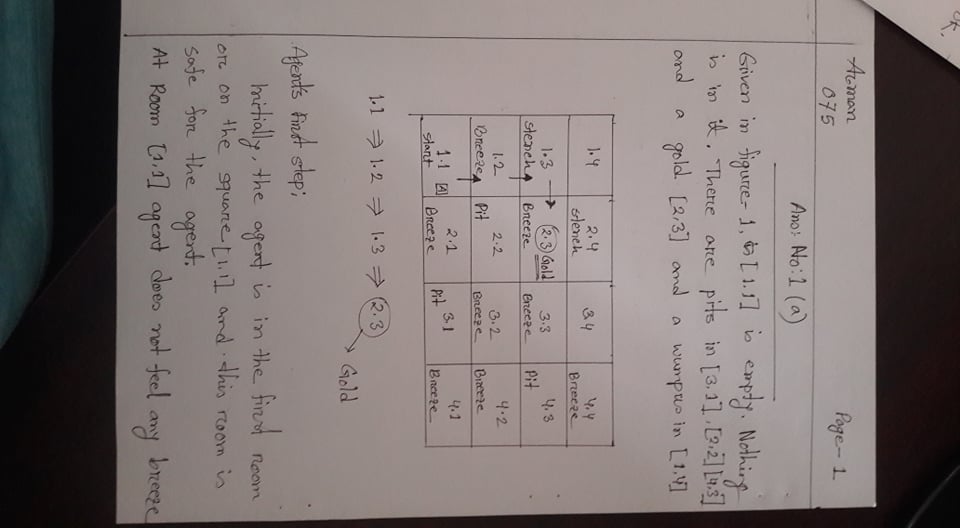 OK.
Arman
075
Page-1
Ans: No: 1 (a)
Given in figure-1, [1.1] is empty. Nothing
is in it. There are pits in [3,1], [2,2] [4,3]
and a gold [2,3] and a wumpus in [1,4]
1.4 2.4 3.4 4.4
stench Breeze
1.3 → 2.3 Gold 3.3 4.3
stench Breeze Breeze Pit
1.2 2.2 3.2 4.2
Breeze Pit Breeze Breeze
1.1 A 2.1 3.1 4.1
start Breeze Pit Breeze
1.1 ⇒ 1.2 ⇒ 1.3 ⇒ 2.3
Gold
Agent's first step;
Initially, the agent is in the first room
or on the square [1,1] and this room is
safe for the agent.
At Room [1,1] agent does not feel any breeze